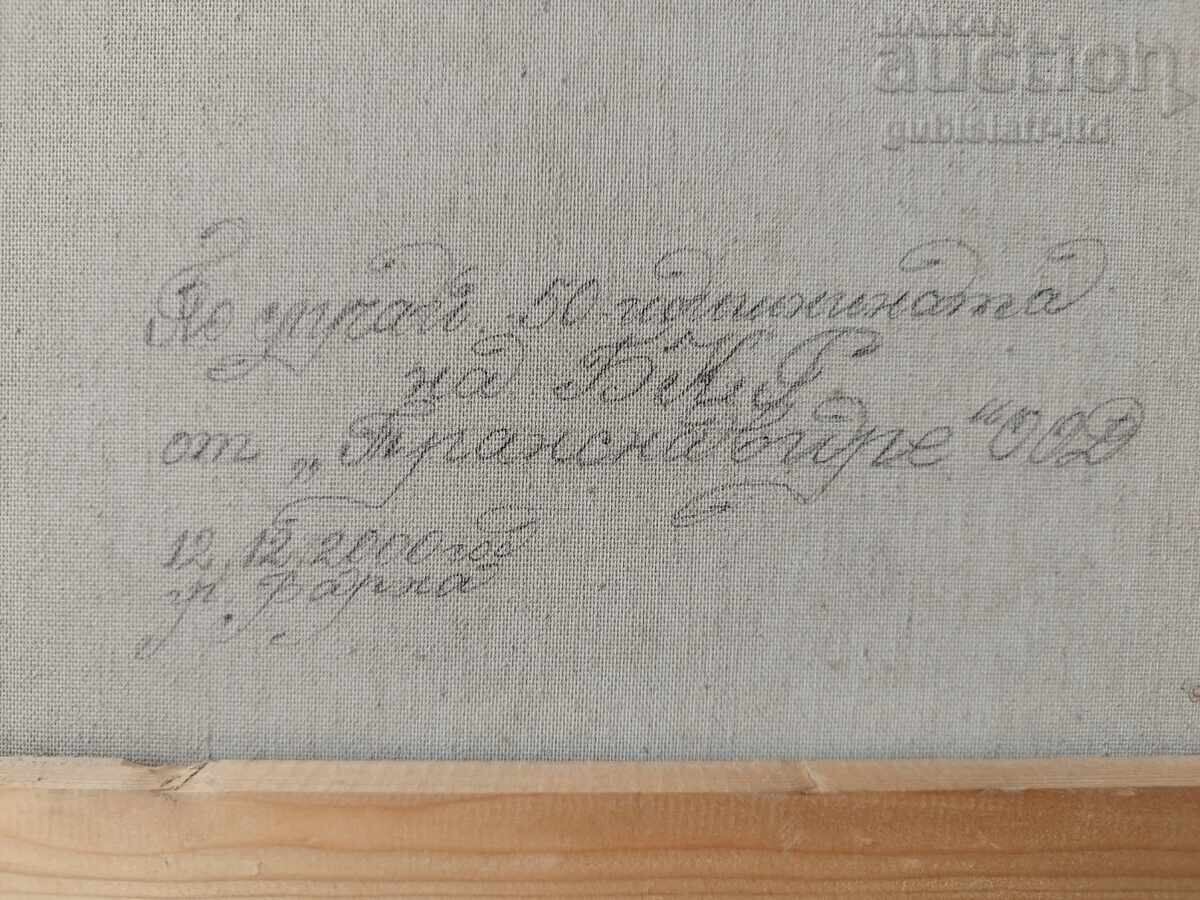 BALKAN
auction
По случай 50-годишнината
на БКИР
от „Транснавояре“ ООД
12.12.2000 год
гр. Варна